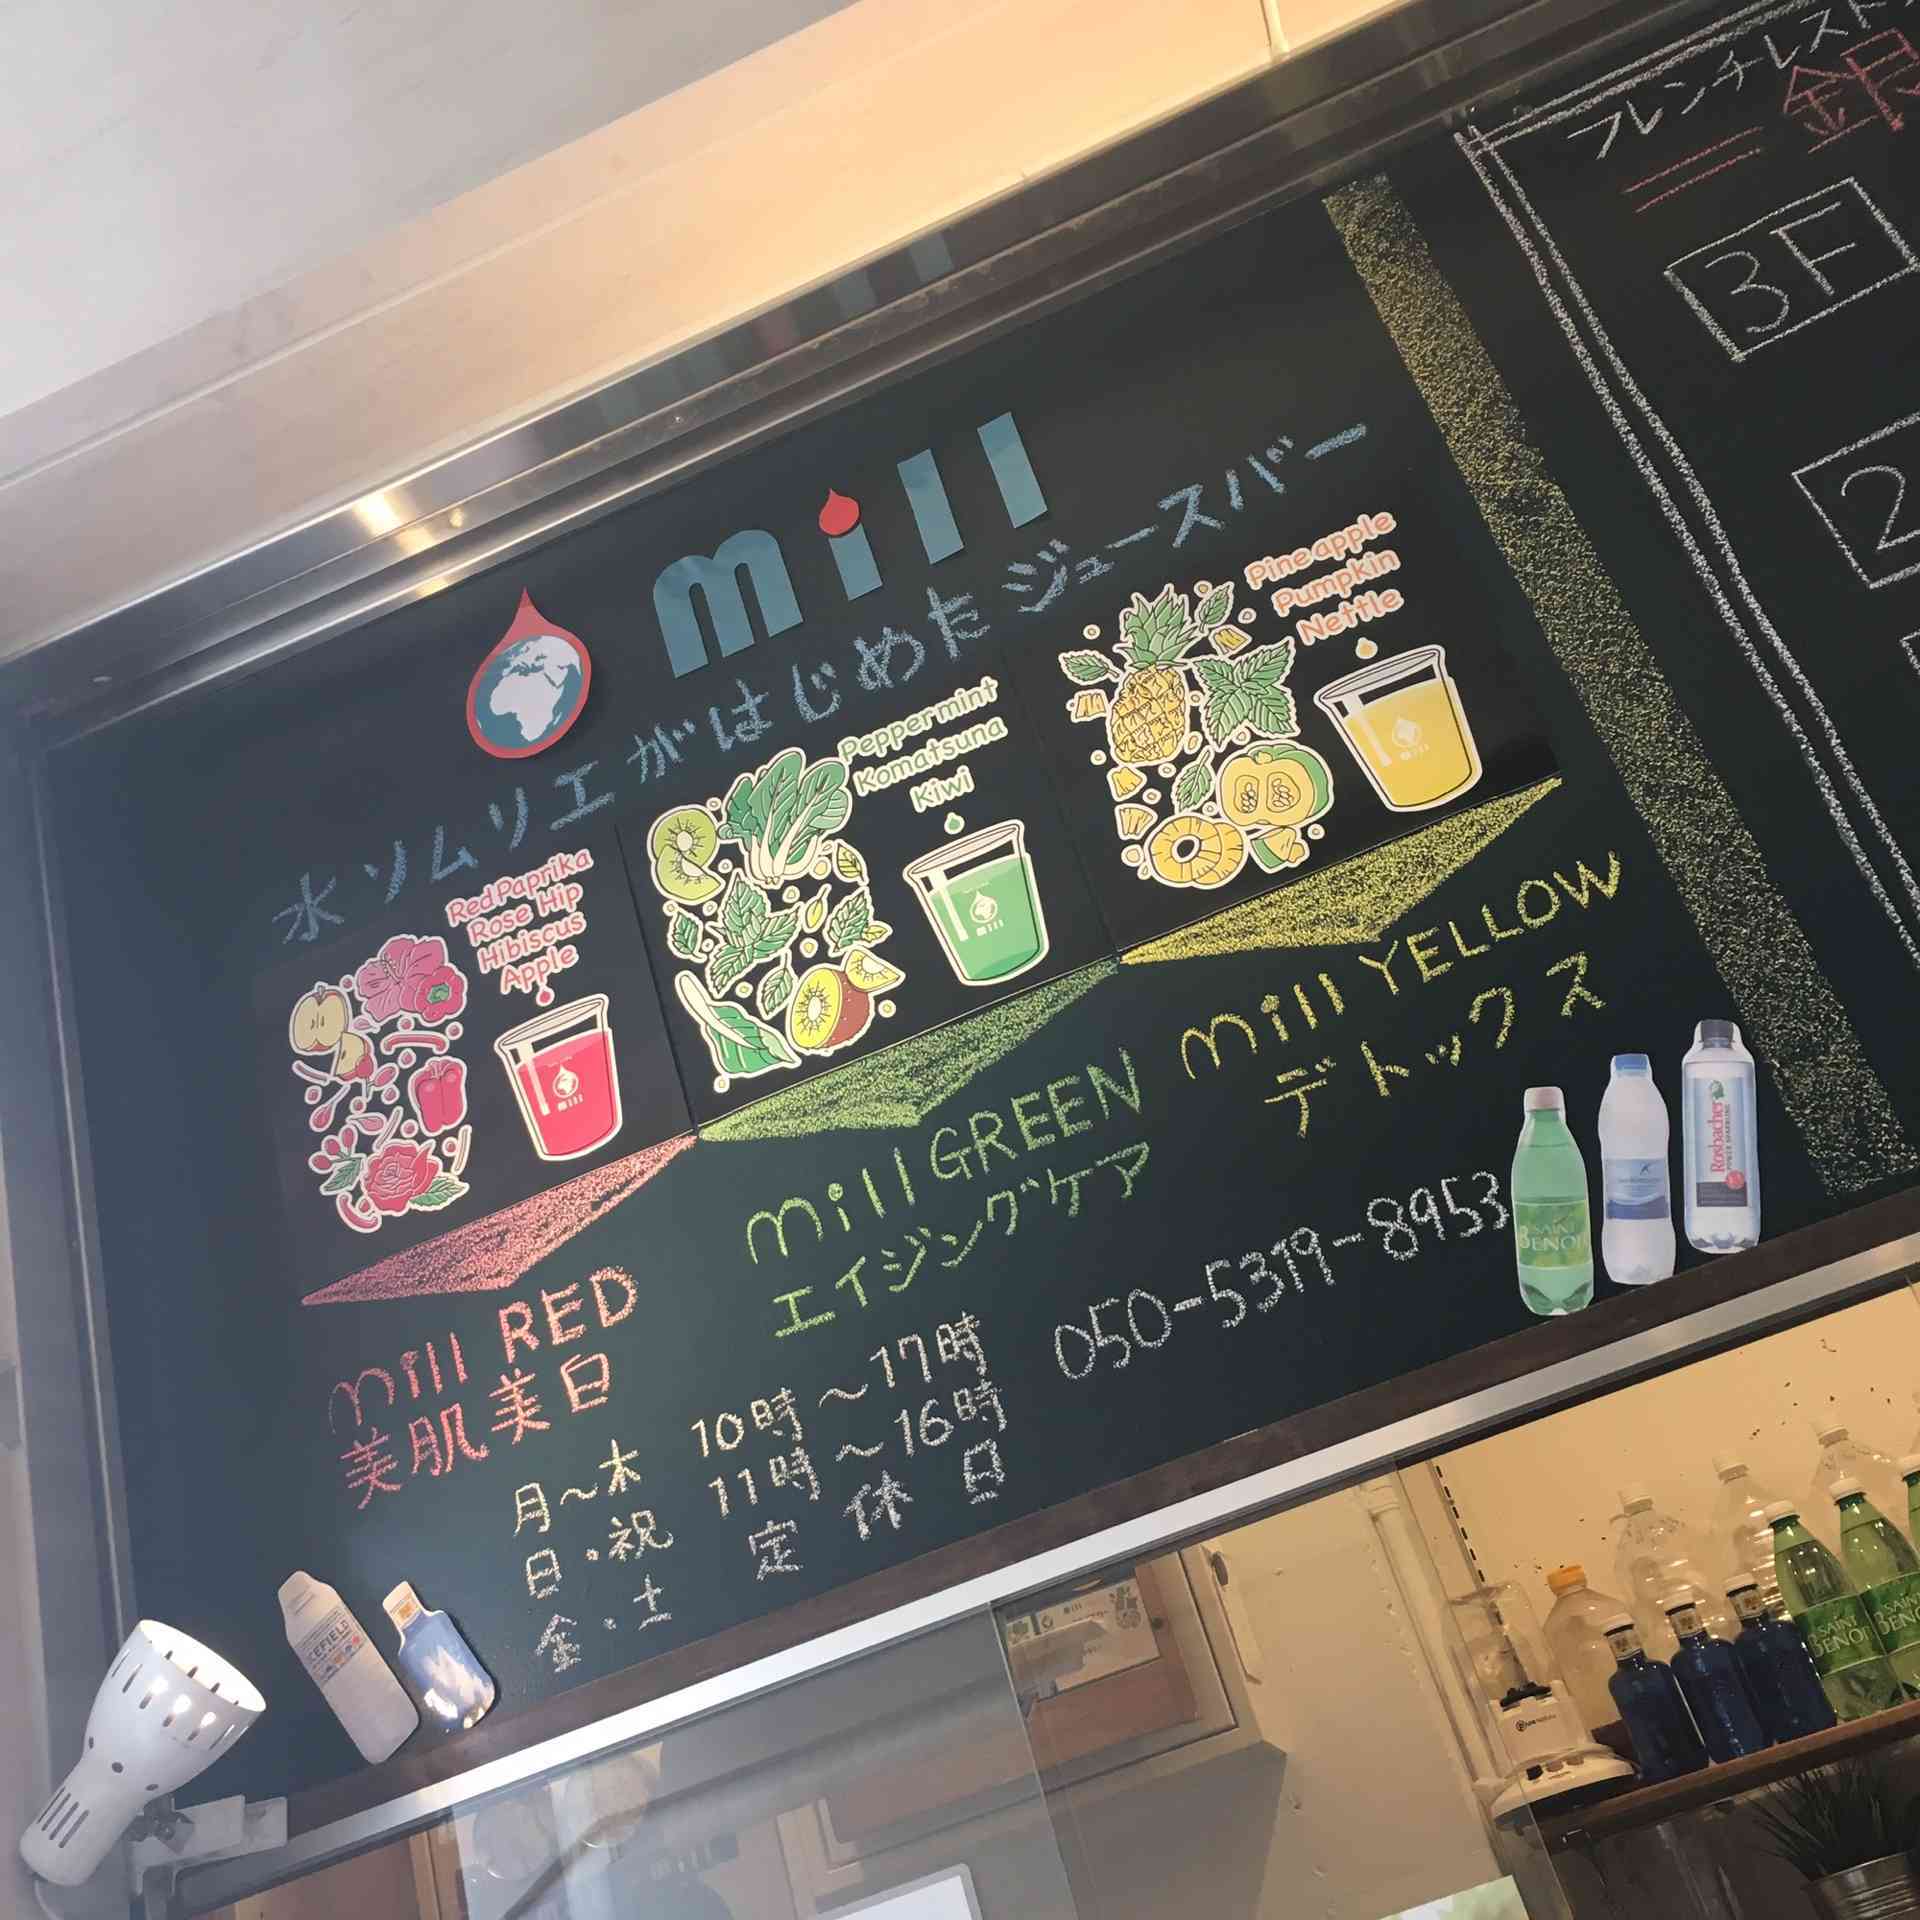 mill
水ソムリエがはじめたジュースバー
Red Paprika
Rose Hip
Hibiscus
Apple
mill
mill RED
美肌美白
Peppermint
Komatsuna
Kiwi
mill
mill GREEN
エイジングケア
Pineapple
Pumpkin
Nettle
mill
mill YELLOW
デトックス
月〜木 10時〜17時
日・祝 11時〜16時
金・土 定休日
050-5319-8953
ICEFIELD
SAINT
BENOIT
Rosbacher
フレンチレスト
銀
3F
2
SAINT
BENOIT